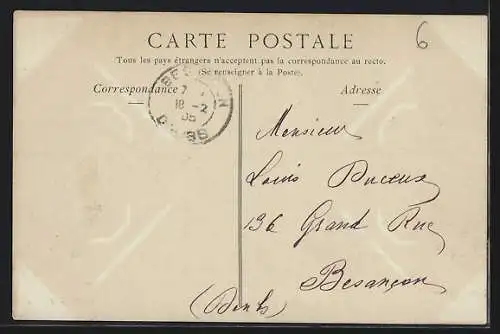 CARTE POSTALE
6
Tous les pays étrangers n'acceptent pas la correspondance au recto.
(Se renseigner à la Poste).
Correspondance
Adresse
BESANÇON
7
18-2
05
DOUBS
Monsieur
Louis Duceux
136 Grand Rue
Besançon
(Doubs)